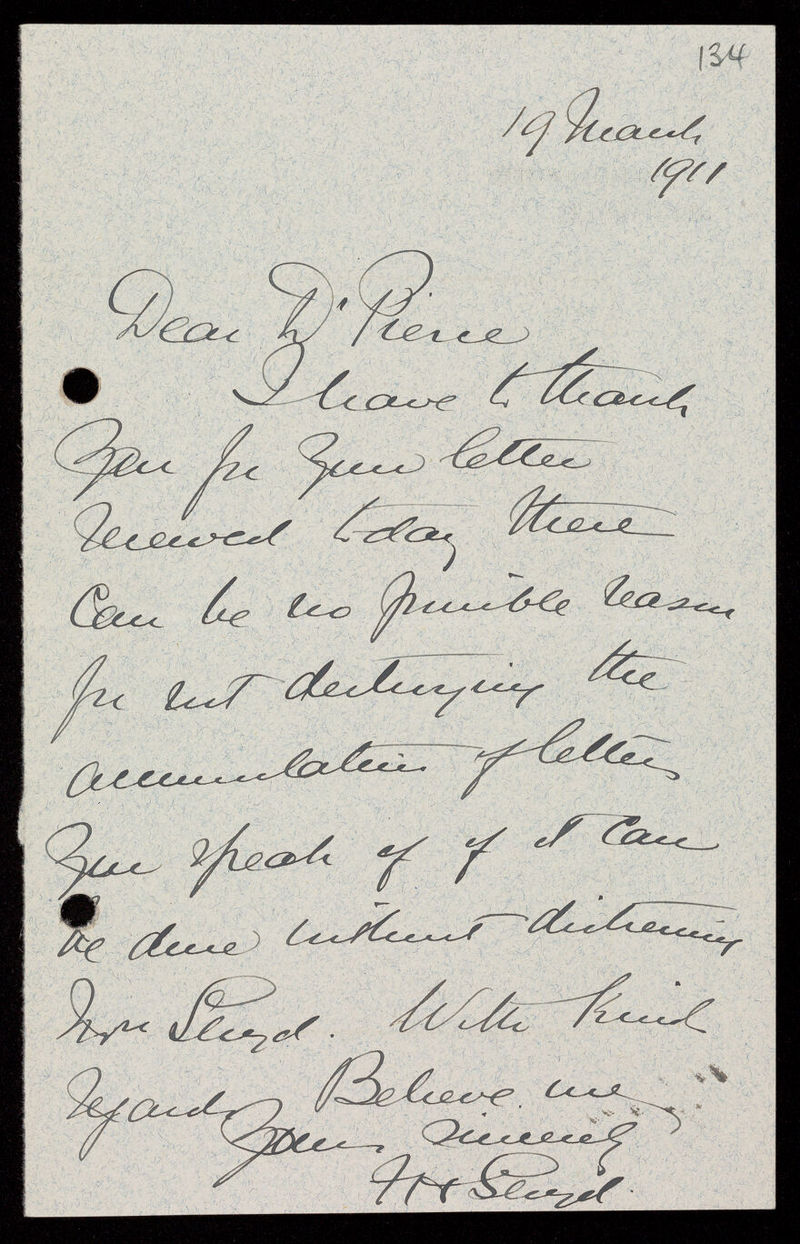 134
19 March
1911
Dear Dr Pierce
I have to thank
you for your letter
received today there
can be no possible reason
for not destroying the
accumulation of letters
you speak of if it can
be done without distressing
Mrs Lloyd. With kind
regards Believe me
Yours sincerely
Lloyd.